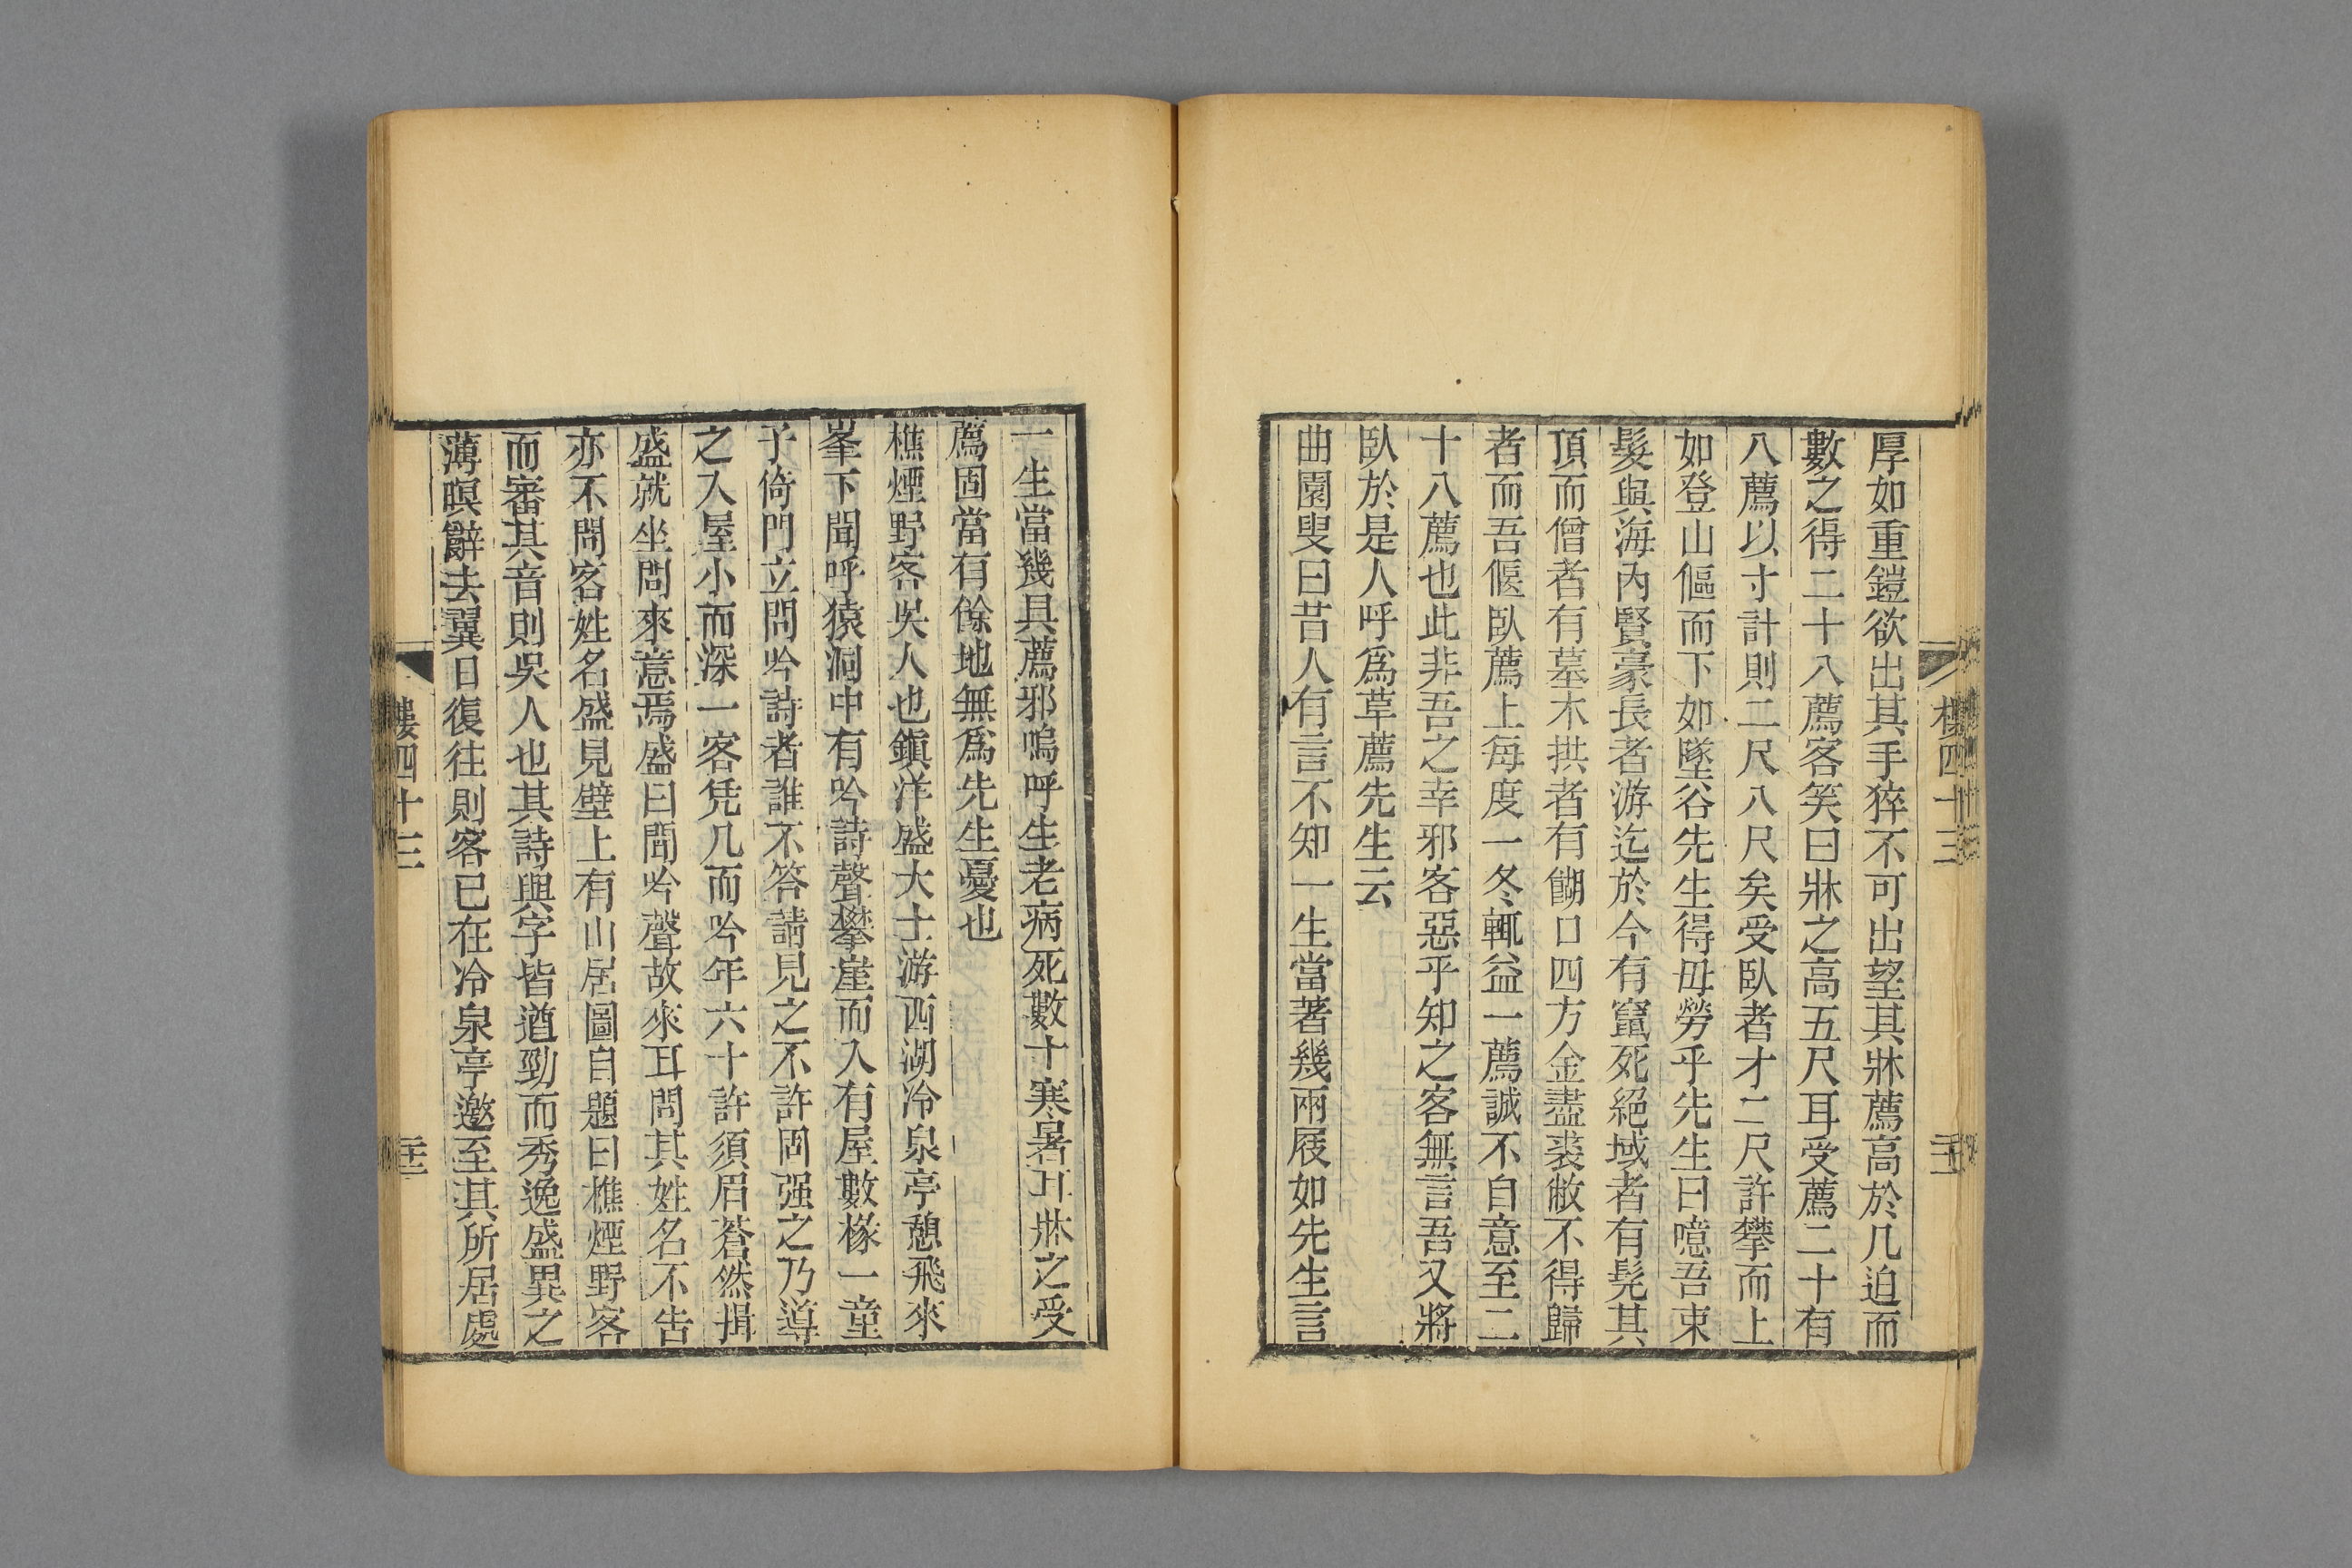 厚如重鎧欲出其手猝不可出望其牀薦高於几迫而
數之得二十八薦客笑曰牀之高五尺耳受薦二十有
八薦以寸計則二尺八尺矣受臥者才二尺許攀而上
如登山傴而下如墜谷先生得毋勞乎先生曰噫吾束
髮與海內賢豪長者游迄於今有竄死絕域者有髡其
頂而僧者有墓木拱者有餬口四方金盡裘敝不得歸
者而吾偃臥薦上每度一冬輒益一薦誠不自意至二
十八薦也此非吾之幸邪客惡乎知之客無言吾又將
臥於是人呼爲草薦先生云
曲園叟曰昔人有言不知一生當著幾兩屐如先生言
一生當幾具薦邪嗚呼生老病死數十寒暑耳牀之受
薦固當有餘地無爲先生憂也
樵煙野客吳人也鎭洋盛大士游西湖冷泉亭憩飛來
峯下聞呼猿洞中有吟詩聲攀崖而入有屋數椽一童
子倚門立問吟詩者誰不答請見之不許固强之乃導
之入屋小而深一客凭几而吟年六十許須眉蒼然揖
盛就坐問來意焉盛曰聞吟聲故來耳問其姓名不告
亦不問客姓名盛見壁上有山居圖自題曰樵煙野客
而審其音則吳人也其詩與字皆遒勁而秀逸盛異之
薄暝辭去翼日復往則客已在冷泉亭邀至其所居處
樓四十三